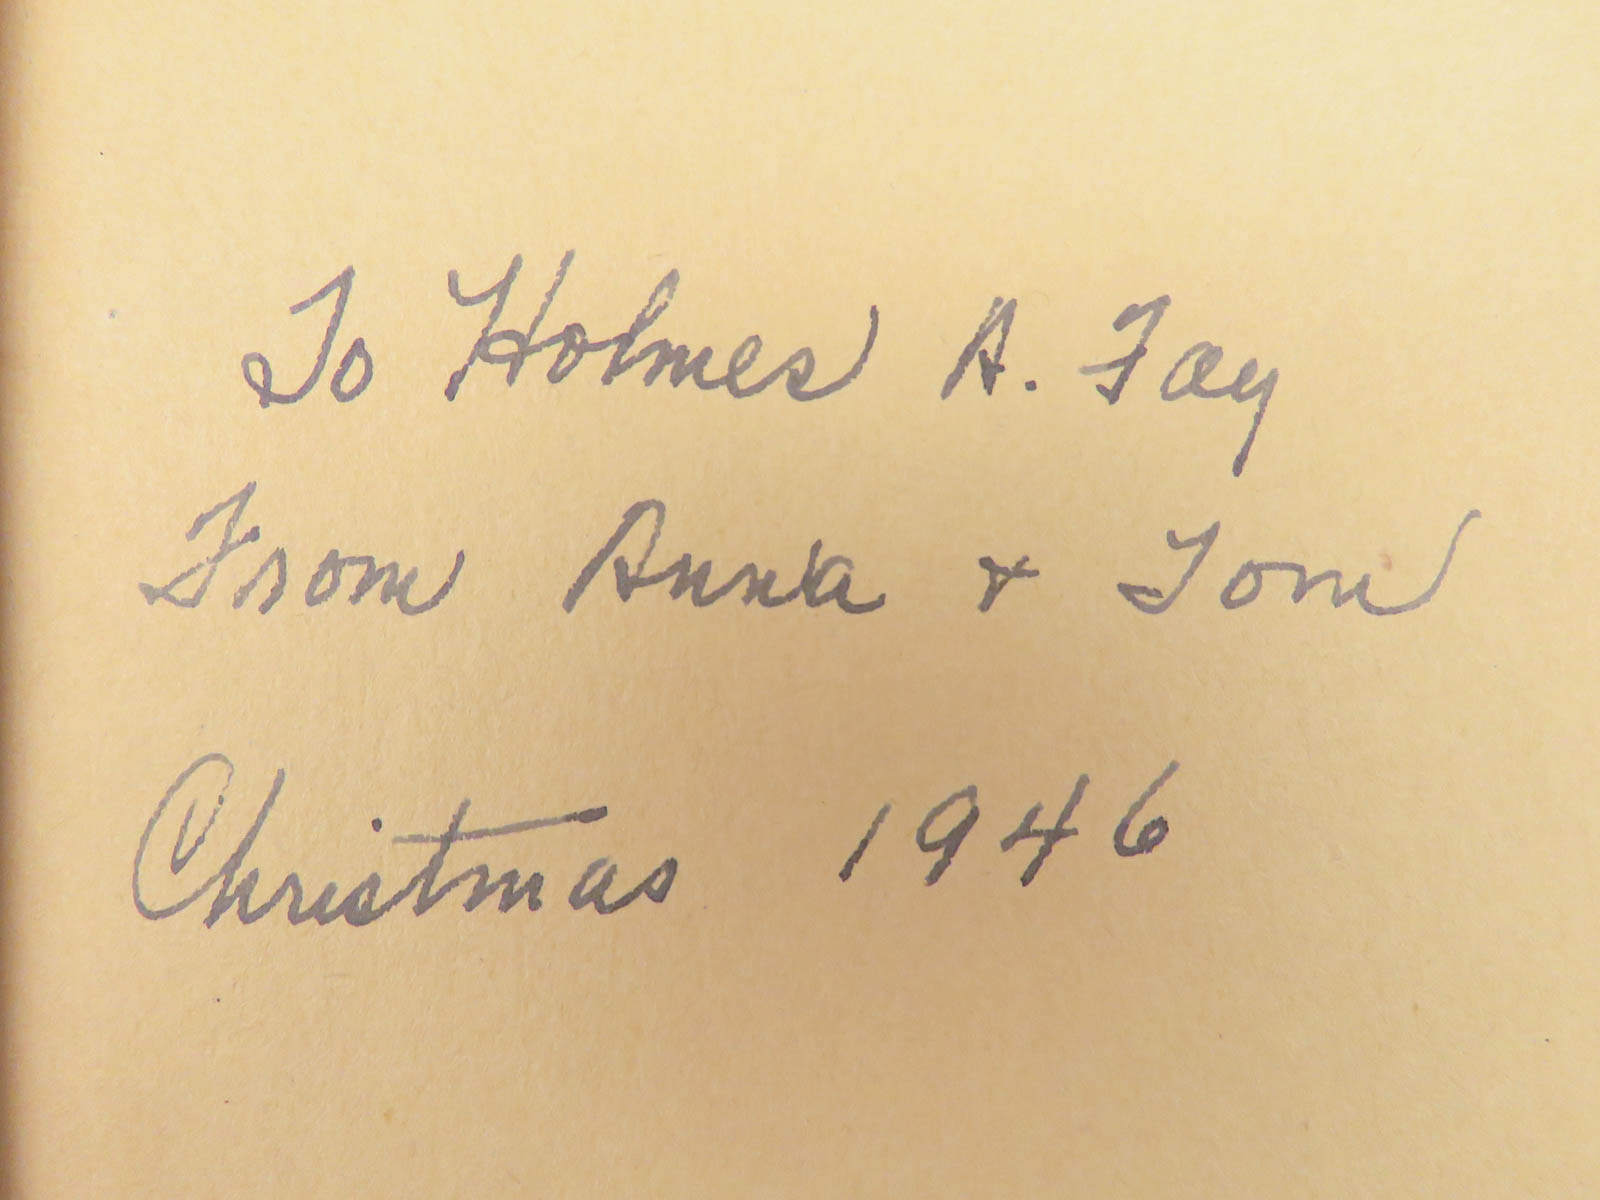 To Holmes A. Fay
From Anna & Tom
Christmas 1946